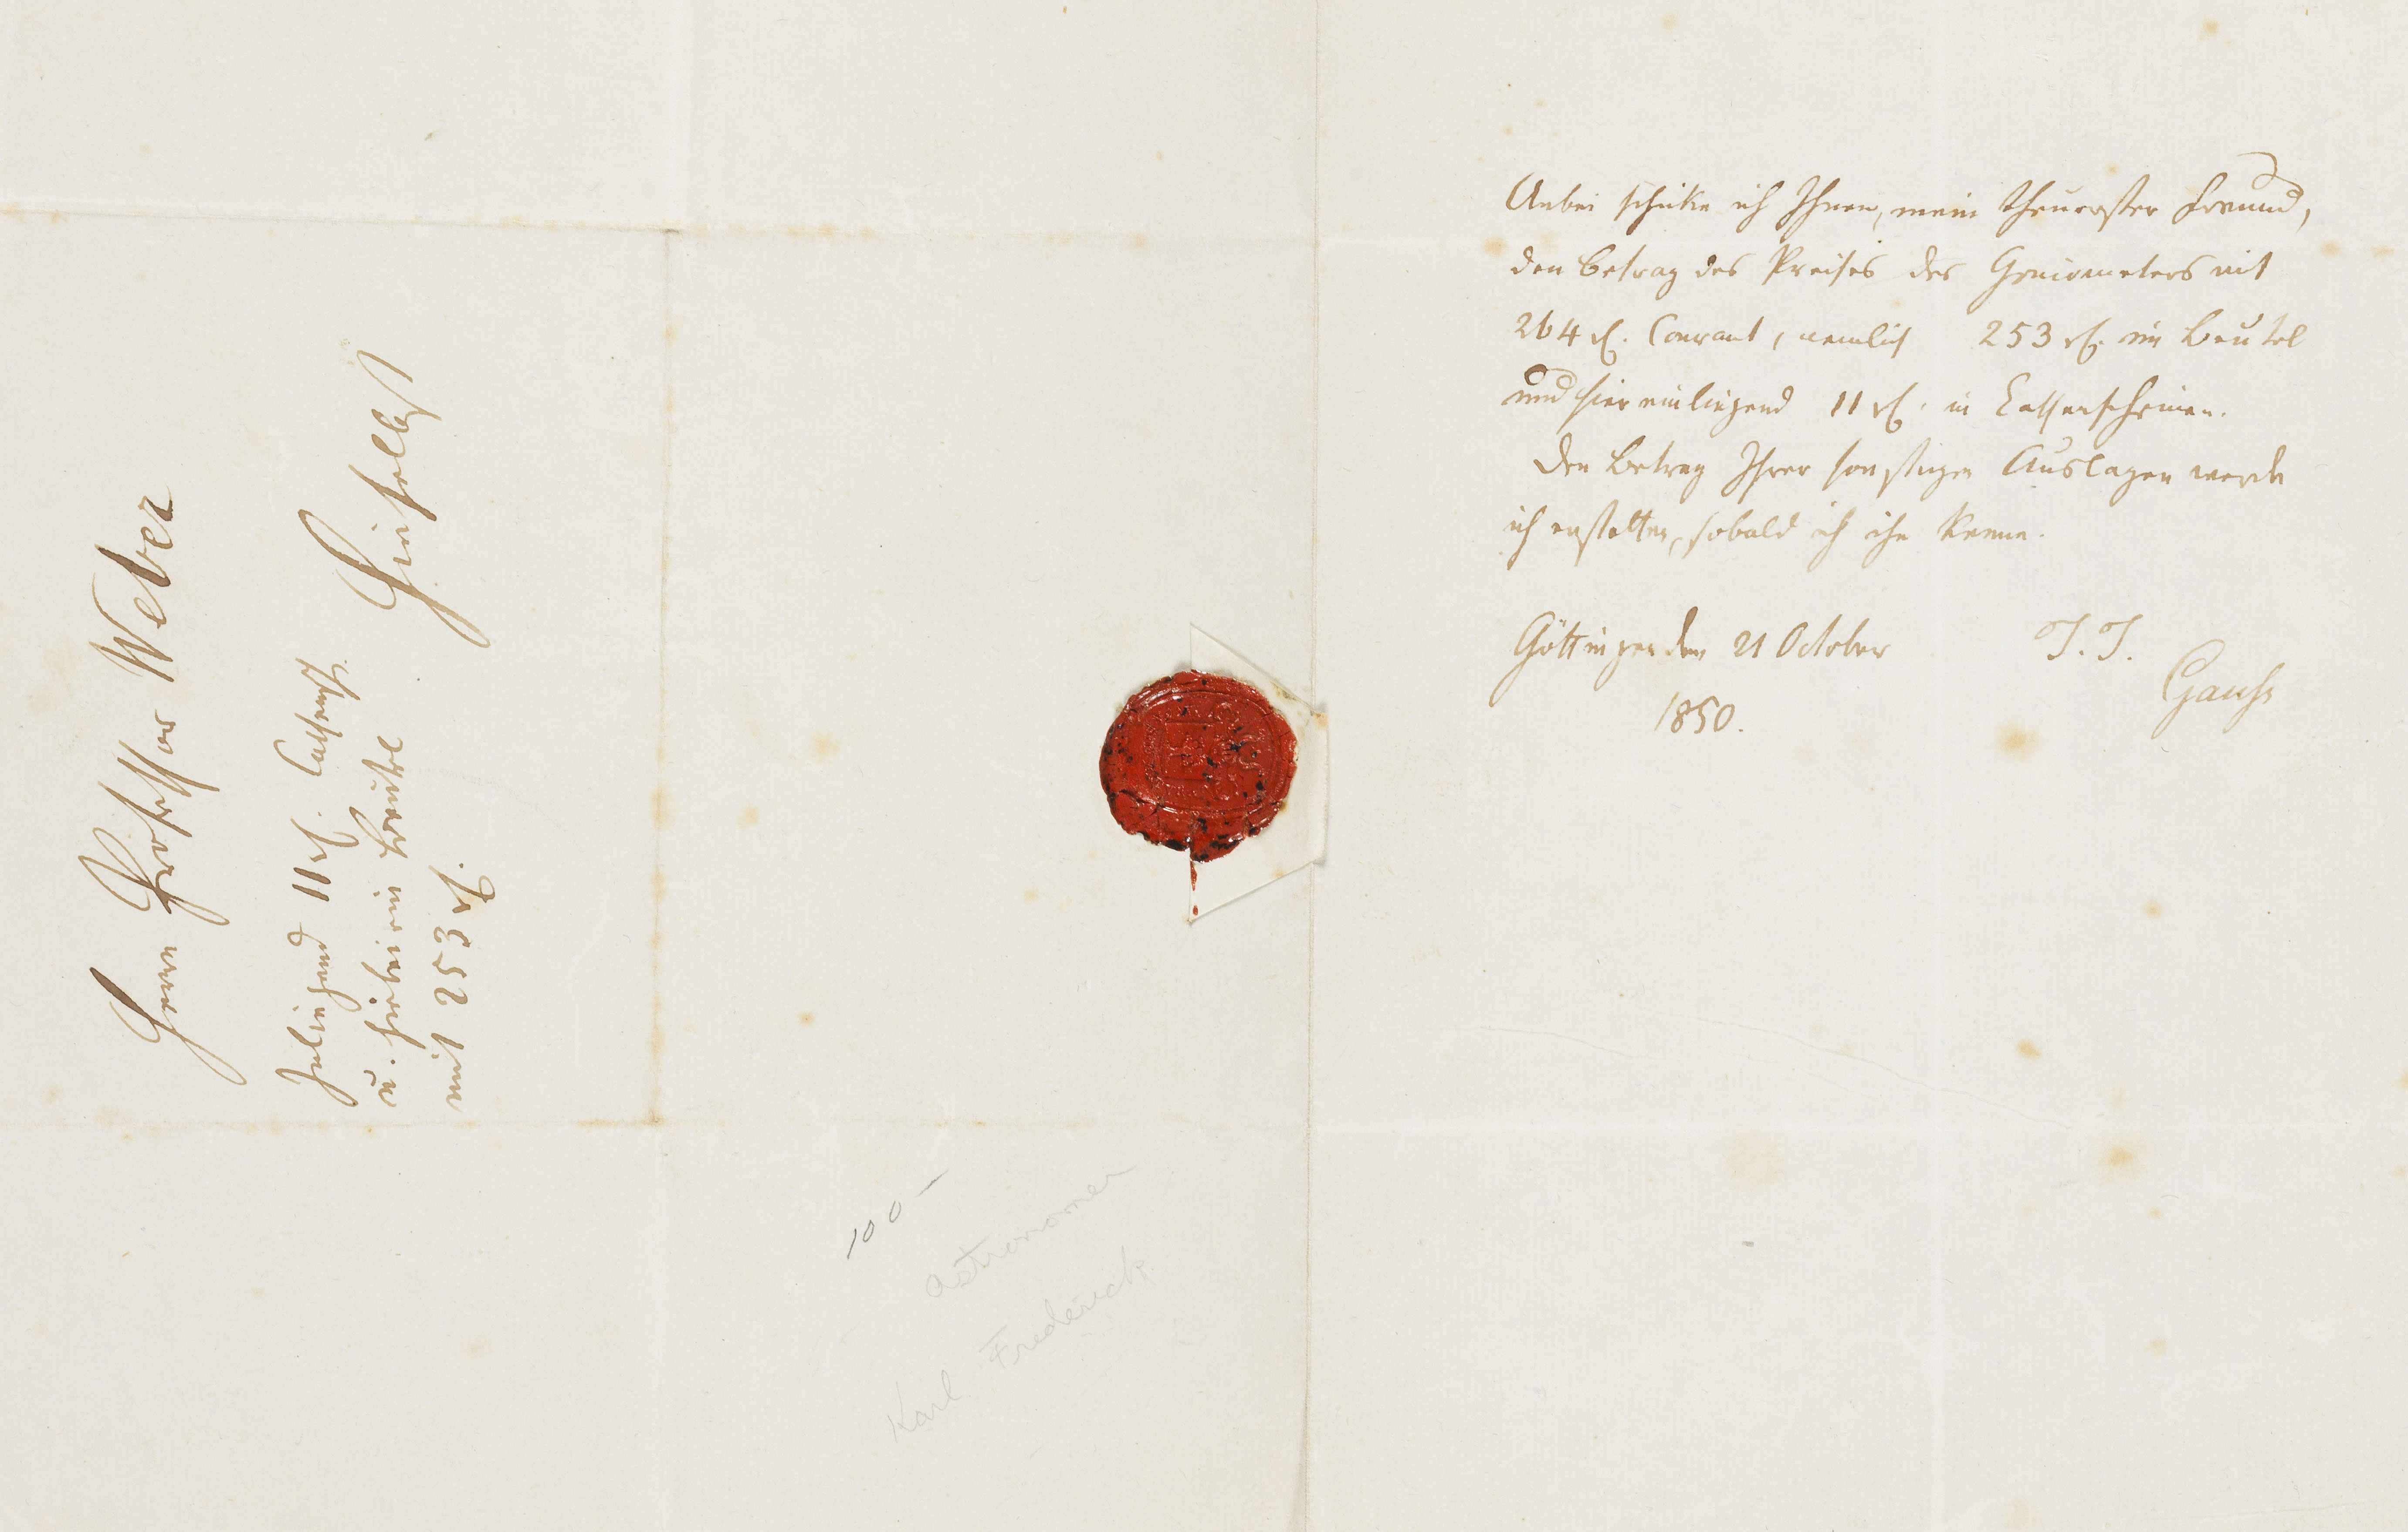 Anbei schicke ich Ihnen, mein theuerster Freund,
den Betrag des Preises des Goniometers mit
264 rth. Courant, nemlich 253 rth. im Beutel
und hier einliegend 11 rth. in Cassenscheinen.
Den Betrag Ihrer sonstigen Auslagen werde
ich erstatten, sobald ich ihn kenne.
Göttingen den 21 October
1850.
T. T.
Gauß
Herrn Professor Weber
Hieselbst
Inliegend 11 rth. Cassensch.
u. hiebei ein Beutel
mit 253 rth.
100 –
Astronomer
Karl Frederick